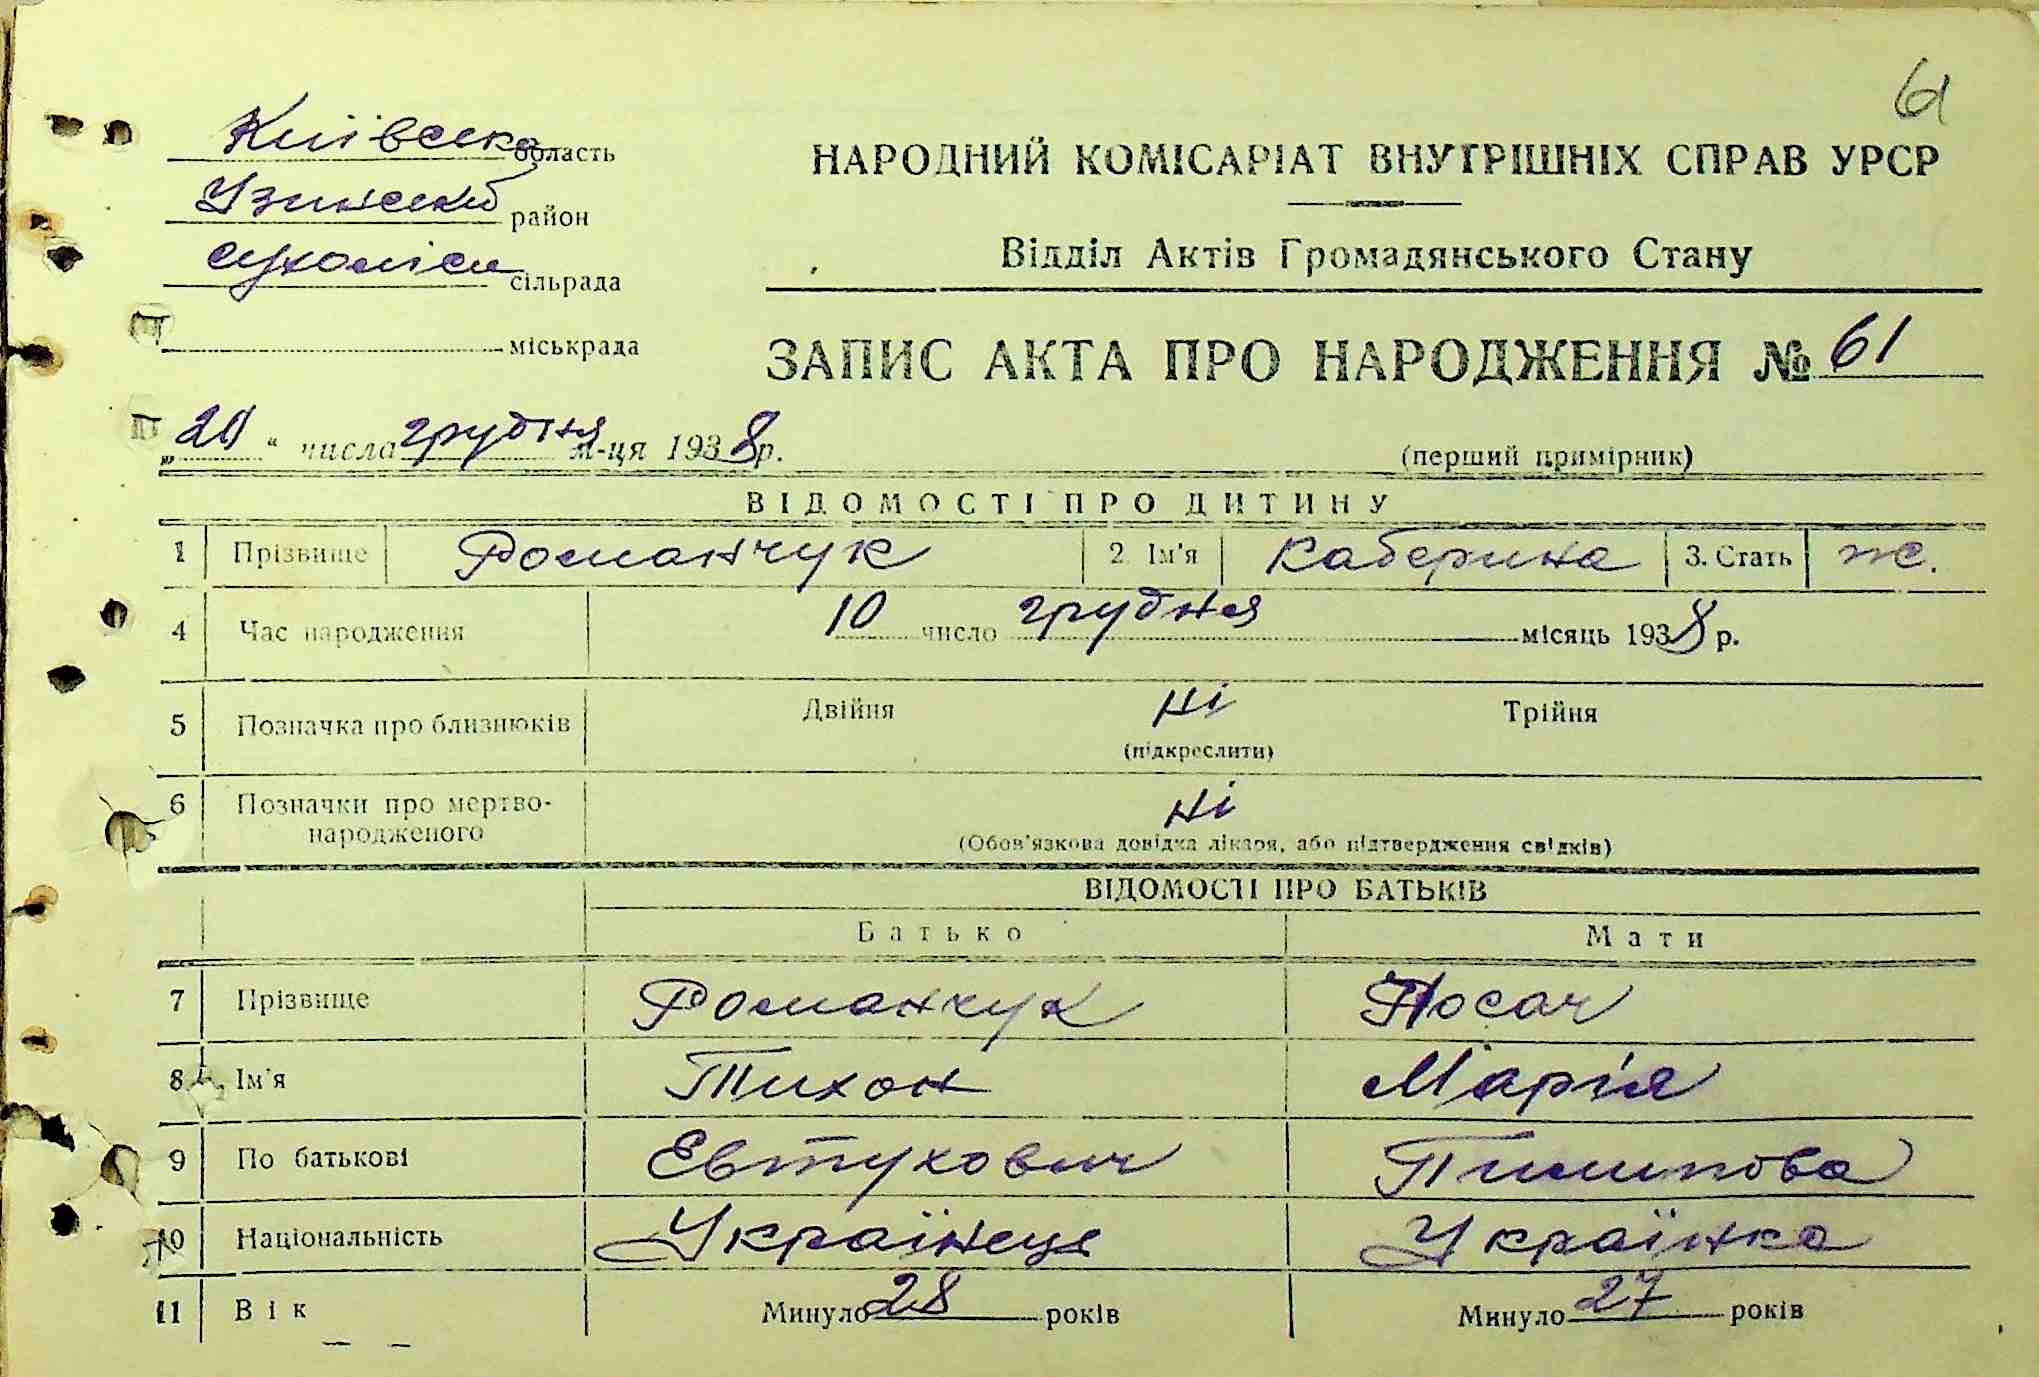 61
Київська область
Узинський район
Сухоліси сільрада
міськрада
НАРОДНИЙ КОМІСАРІАТ ВНУТРІШНІХ СПРАВ УРСР
Відділ Актів Громадянського Стану
ЗАПИС АКТА ПРО НАРОДЖЕННЯ № 61
„20“ числа грудня м-ця 1938 р.
(перший примірник)
ВІДОМОСТІ ПРО ДИТИНУ
1 Прізвище Романчук 2. Ім'я Каберина 3. Стать ж.
4 Час народження 10 число грудня місяць 1938 р.
5 Позначка про близнюків Двійня ні Трійня
(підкреслити)
6 Позначки про мертво-
народженого ні
(Обов'язкова довідка лікаря, або підтвердження свідків)
ВІДОМОСТІ ПРО БАТЬКІВ
Батько Мати
7 Прізвище Романчук Носач
8 Ім'я Тихон Марія
9 По батькові Евтухович Пилипова
10 Національність Українець Українка
11 Вік Минуло 28 років Минуло 27 років